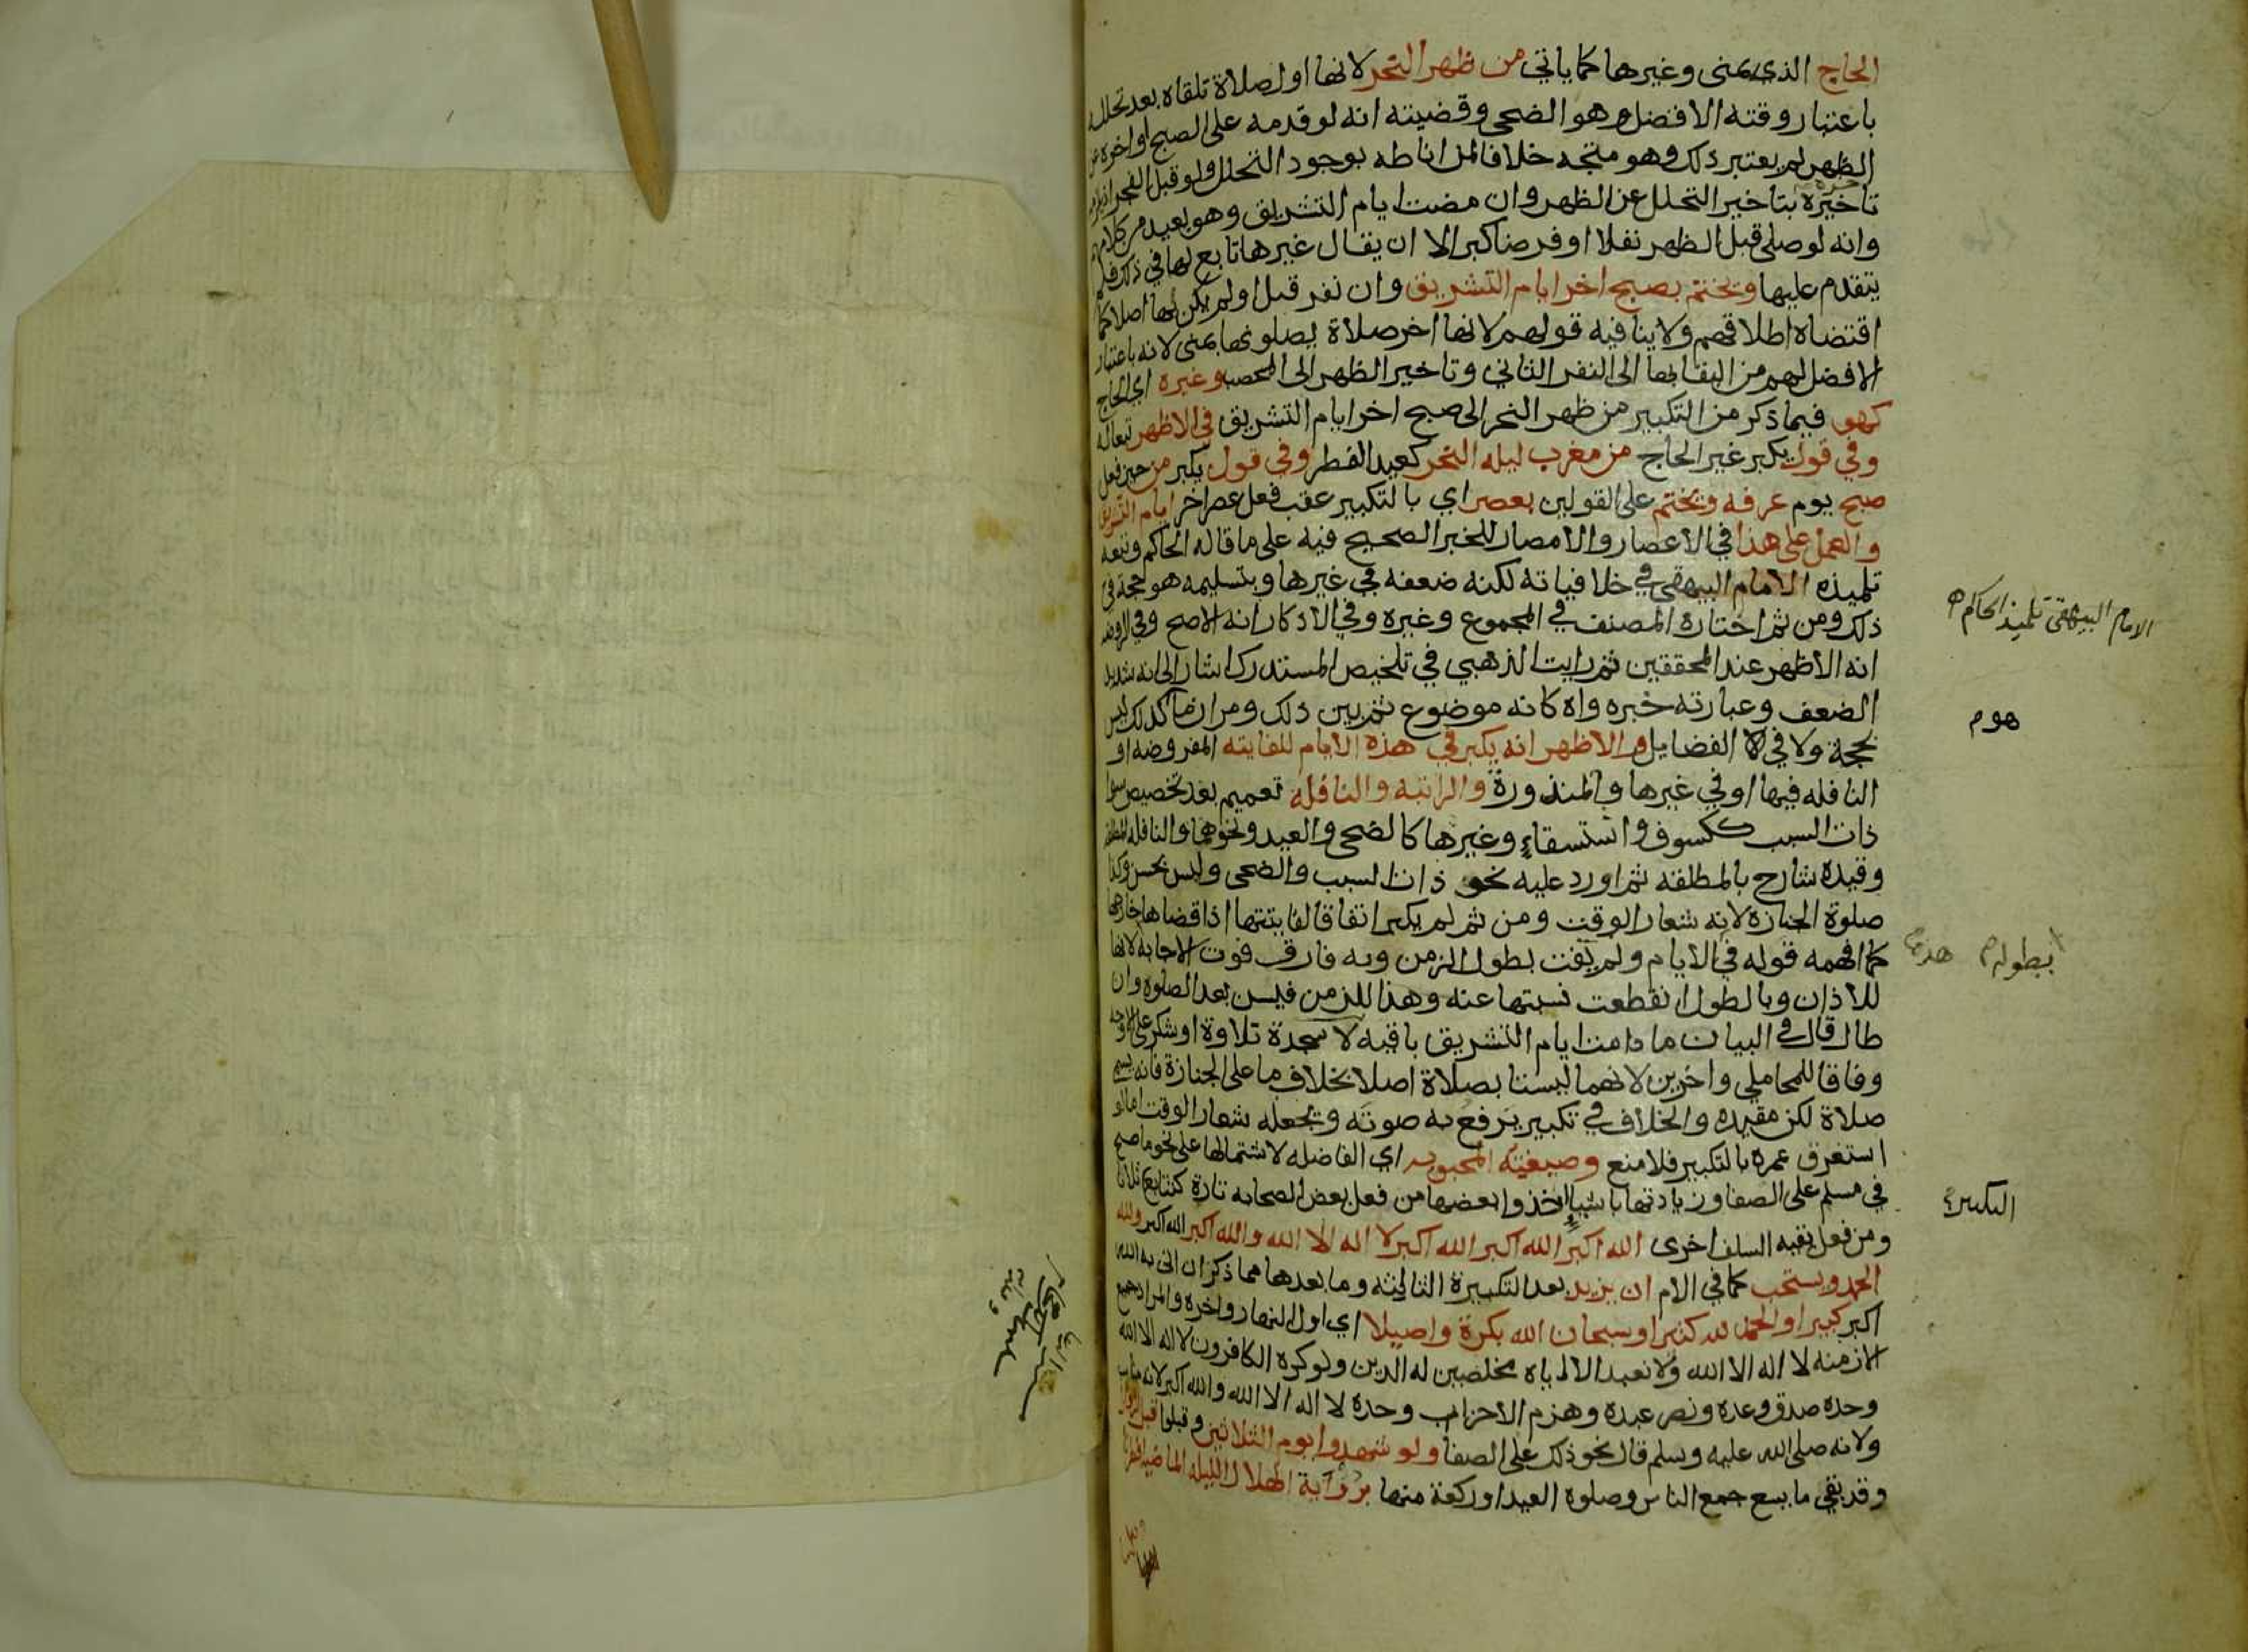 الحاج الذي بمنى وغيرها كما ياتي من ظهر النحر لانها اول صلاة تلقاه بعد تحلله
باعتبار وقته الافضل وهو الضحى وقضيته انه لو قدمه على الصبح او اخره عن
الظهر لم يعتبر ذلك وهو متجه خلافا لمن اناطه بوجود التحلل ولو قبل الفجر
تاخيره بتاخير التحلل عن الظهر وان مضت ايام التشريق وهو بعيد من كلامهم
وانه لو صلى قبل الظهر نفلا او فرضا كبر الا ان يقال غيرها تابع لها في ذلك فلم
يتقدم عليها ويختم بصبح اخر ايام التشريق وان نفر قبل او لم يكن بها اصلا كما
اقتضاه اطلاقهم ولا ينافيه قولهم لانها اخر صلاة يصلونها بمنى لانه باعتبار
الافضل لهم من البقا بها الى النفر الثاني وتاخير الظهر الى المحصب وغيره اي الحاج
كهو فيما ذكر من التكبير من ظهر النحر الى صبح اخر ايام التشريق في الاظهر تبعا له
وفي قول يكبر غير الحاج من مغرب ليله النحر كعيد الفطر وفي قول يكبر من حين فعل
صبح يوم عرفه ويختم على القولين بعصر اي بالتكبير عقب فعل عصر اخر ايام التشريق
والعمل على هذا في الاعصار والامصار للخبر الصحيح فيه على ما قاله الحاكم وتبعه
تلميذه الامام البيهقي في خلافياته لكنه ضعفه في غيرها وبتسليمه هو حجة في
ذلك ومن ثم اختاره المصنف في المجموع وغيره وفي الاذكار انه الاصح وفي الروضه
انه الاظهر عند المحققين ثم رايت الذهبي في تلخيص المستدرك اشار الى انه شديد
الضعف وعبارته خبره واه كانه موضوع ثم بين ذلك ومر ان ما كذلك ليس
بحجة ولا في الفضايل والاظهر انه يكبر في هذه الايام للفايته المفروضه او
النافله فيها او في غيرها والمنذورة والراتبه والنافله تعميم بعد تخصيص سوا
ذات السبب ككسوف واستسقاء وغيرها كالضحى والعيد ونحوهما والنافله المطلقه
وقيده شارح بالمطلقه ثم اورد عليه نحو ذات السبب والضحى وليس بحسن وكذا
صلوة الجنازه لانه شعار الوقت ومن ثم لم يكبر اتفاقا لفايتتها اذا قضاها خارجها
كما افهمه قوله في الايام ولم يفت بطول الزمن وبه فارق فوت الاجابه لانها
للاذان وبالطول انقطعت نسبتها عنه وهذا للزمن فيسن بعد الصلوة وان
طال قال في البيان ما دامت ايام التشريق باقيه لا سجدة تلاوة او شكر على الاوجه
وفاقا للمحاملي واخرين لانهما ليستا بصلاة اصلا بخلاف ما على الجنازة فانه يسمى
صلاة لكن مقيده والخلاف في تكبير يرفع به صوته ويجعله شعار الوقت اما لو
استغرق عمره بالتكبير فلا منع وصيغته المحبوبه اي الفاضله لاشتمالها على نحو ما صح
في مسلم على الصفا وزيادتها باشياء اخذوا بعضها من فعل بعض الصحابه تارة كتتابع ثلاثا
ومن فعل بقيه السلف اخرى الله اكبر الله اكبر الله اكبر لا اله الا الله والله اكبر الله اكبر ولله
الحمد ويستحب كما في الام ان يزيد بعد التكبيرة الثالثه وما بعدها مما ذكر ان اتى به الله
اكبر كبيرا والحمد لله كثيرا وسبحان الله بكرة واصيلا اي اول النهار واخره والمراد جميع
الازمنه لا اله الا الله ولا نعبد الا اياه مخلصين له الدين ولو كره الكافرون لا اله الا الله
وحده صدق وعده ونصر عبده وهزم الاحزاب وحده لا اله الا الله والله اكبر لانه مناسب
ولانه صلى الله عليه وسلم قال نحو ذلك على الصفا ولو شهدوا يوم الثلاثين وقبلوا قبل الزوال
وقد بقي ما يسع جمع الناس وصلوة العيد او ركعة منها برؤية الهلال الليله الماضيه افطرنا
الامام البيهقي تلميذ الحاكم
بطوله
التكبير